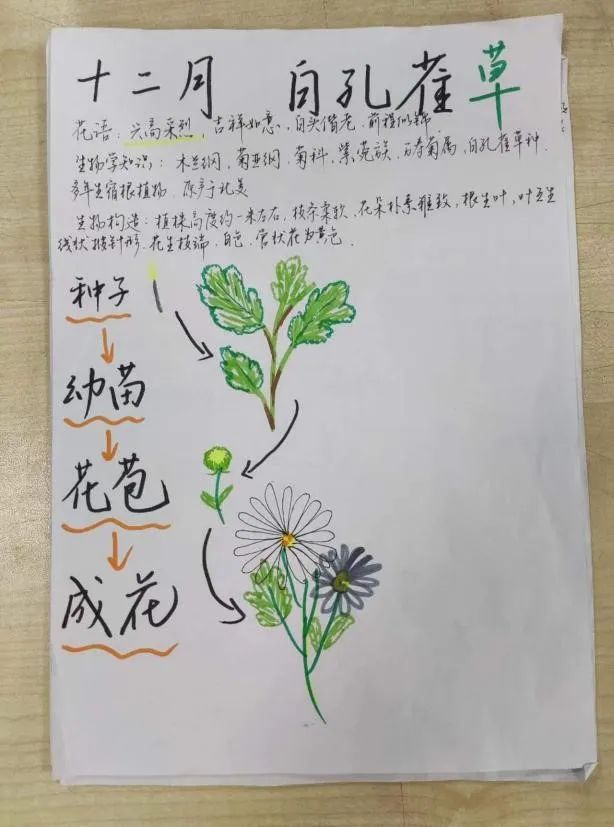 十二月 白孔雀草
花语：兴高采烈，吉祥如意、白头偕老、前程似锦
生物学知识：木兰纲，菊亚纲，菊科，紫菀族，万寿菊属，白孔雀草种．
多年生宿根植物．原产于北美
生物构造：植株高度约一米左右，枝茶柔软，花朵朴素雅致，根生叶，叶互生
线状披针形．花生枝端．白色．管状花为黄色．
种子
幼苗
花苞
成花